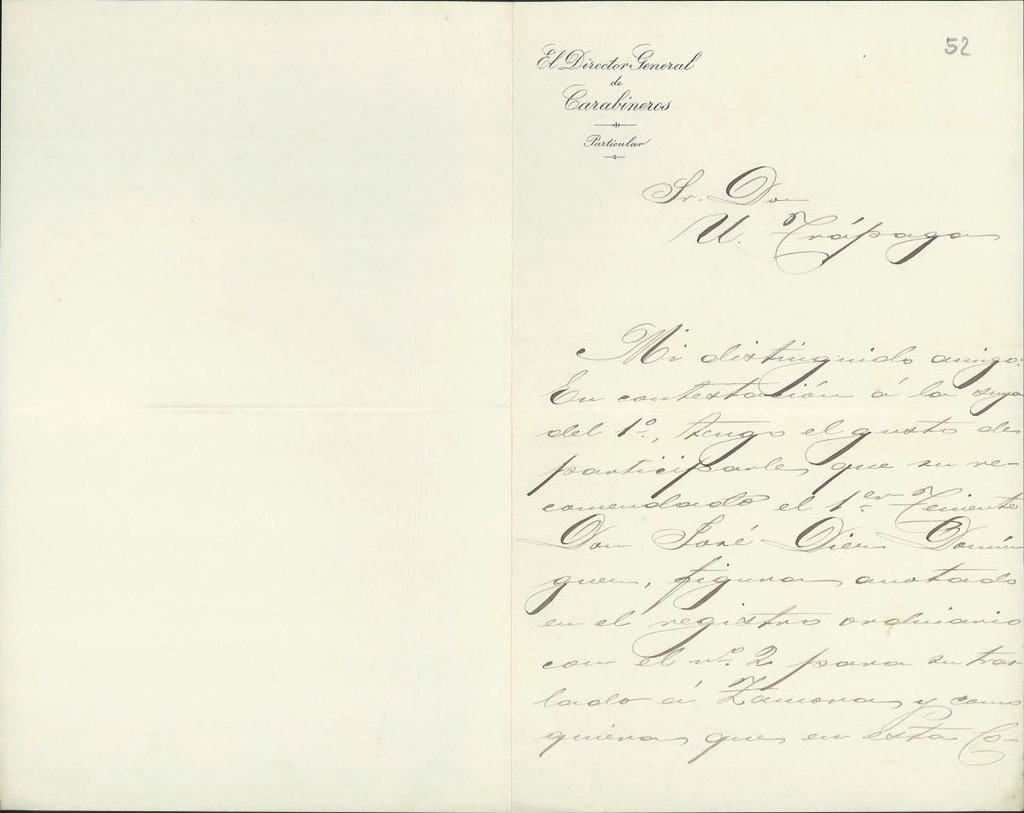 52
El Director General
de
Carabineros
Particular
Sr. Don
U. Trápaga
Mi distinguido amigo:
En contestación á la suya
del 1º, tengo el gusto de
participarle que su re-
comendado el 1er Teniente
Don José Diez Domín
guez, figura anotado
en el registro ordinario
con el nº 2 para su tras
lado á Zamora, y como
quiera que en esta Co-